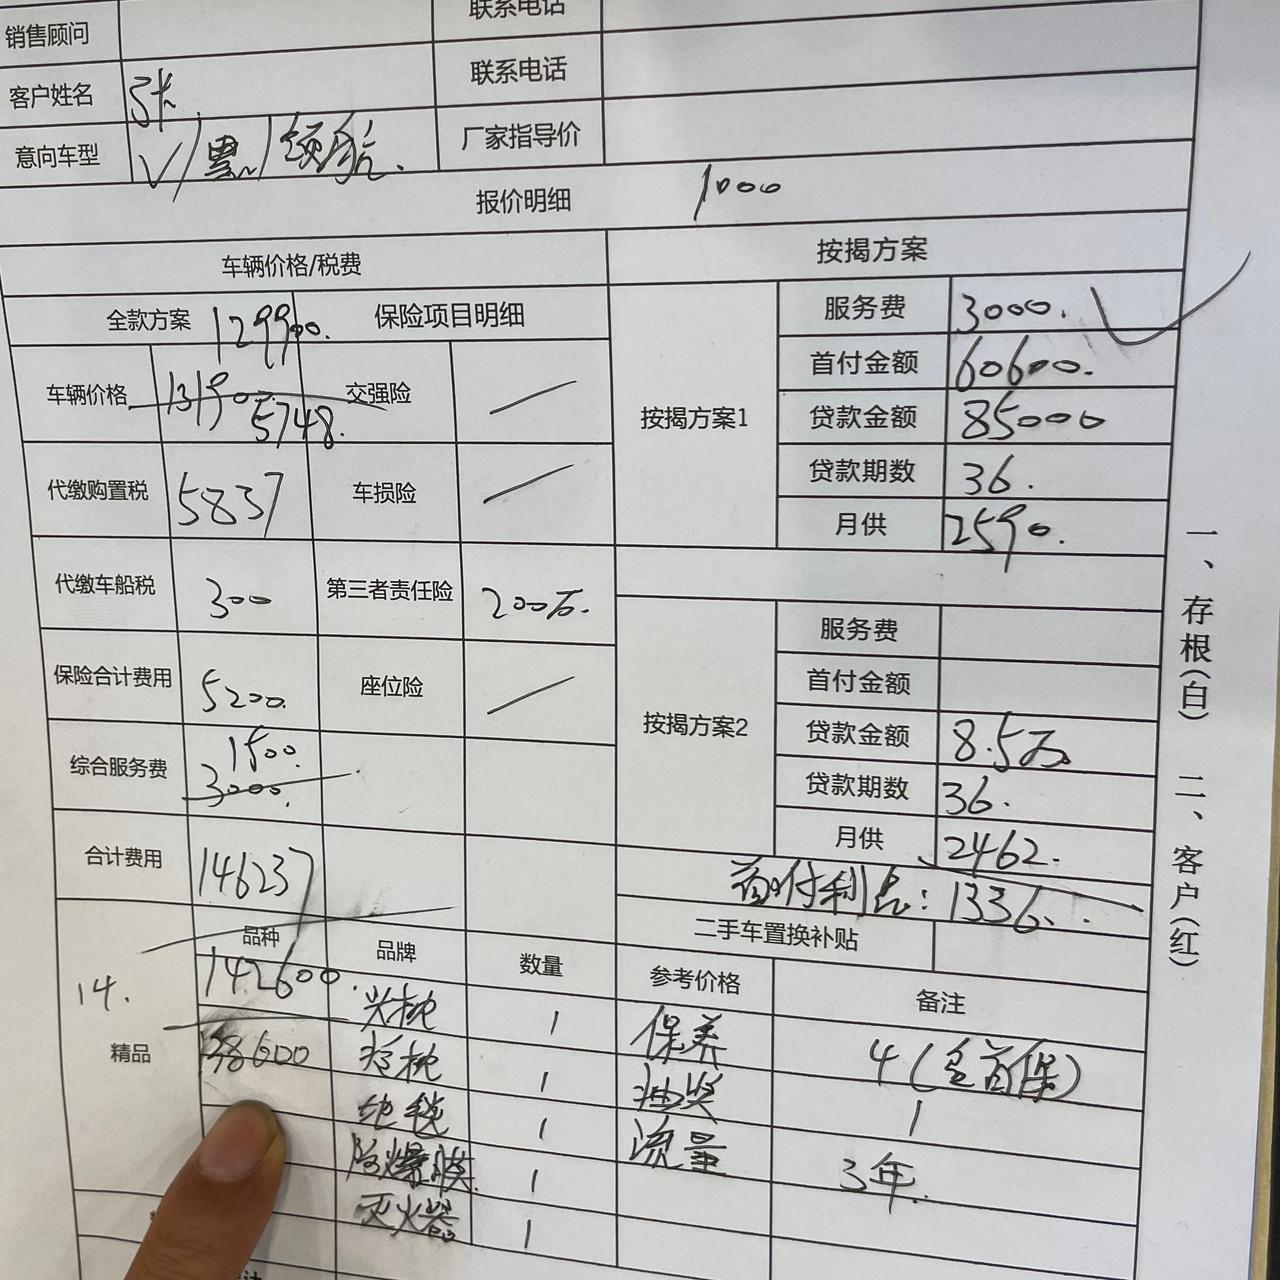 销售顾问 联系电话
客户姓名 张. 联系电话
意向车型 V/黑/领航. 厂家指导价
报价明细 1000
车辆价格/税费 按揭方案
全款方案 129900. 保险项目明细
车辆价格 131900 5748. 交强险 /
代缴购置税 5837 车损险 /
代缴车船税 300 第三者责任险 200万.
保险合计费用 5200. 座位险 /
综合服务费 1500. 3000.
合计费用 146237
按揭方案1
服务费 3000.
首付金额 60600.
贷款金额 85000
贷款期数 36.
月供 2590.
按揭方案2
服务费
首付金额
贷款金额 8.5万
贷款期数 36.
月供 2462.
首付利息: 1336.
二手车置换补贴
14.
精品
品种 品牌 数量 参考价格 备注
142600. 头枕 1 保养 4(含首保)
600 1 抽奖 1
地毯 1 流量 3年.
防爆膜 1
灭火器 1
一、存根(白) 二、客户(红)